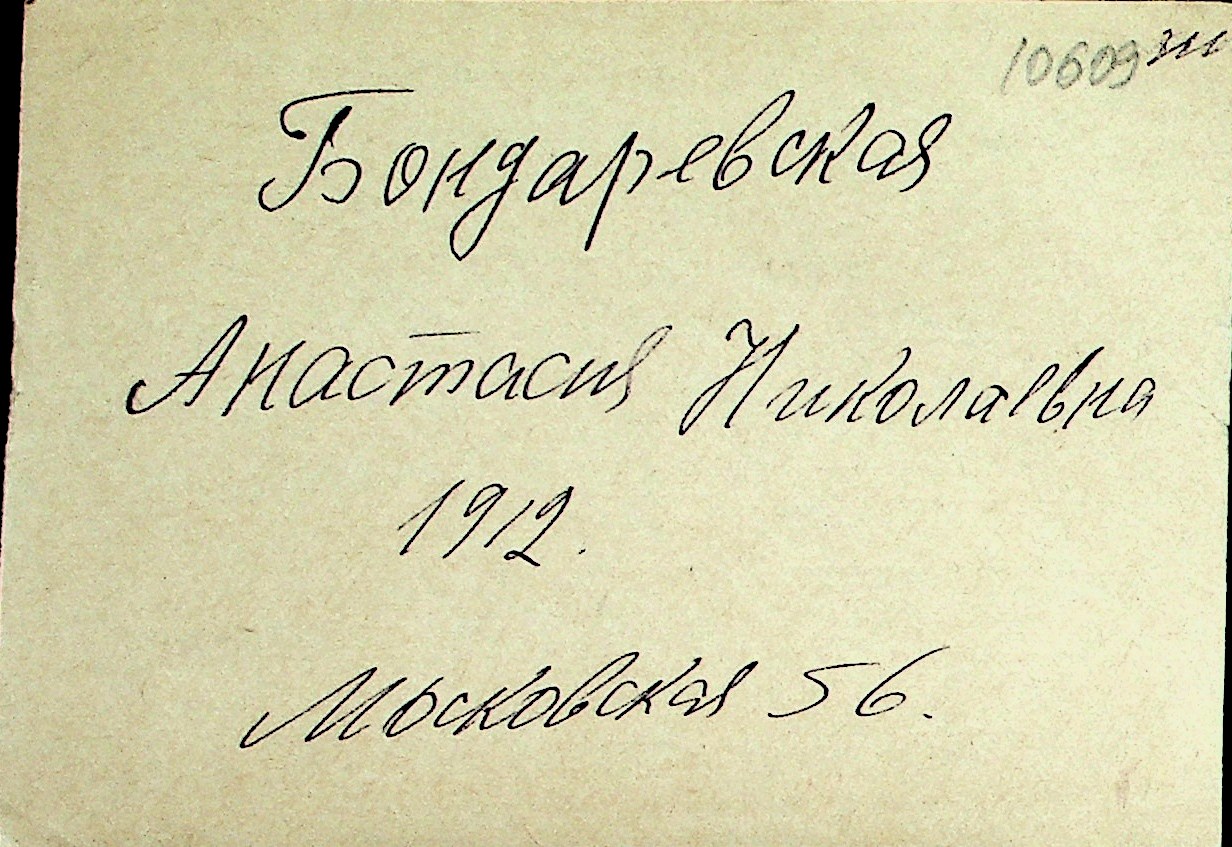 10609
Бондаревская
Анастасия Николаевна
1912.
Московская 56.